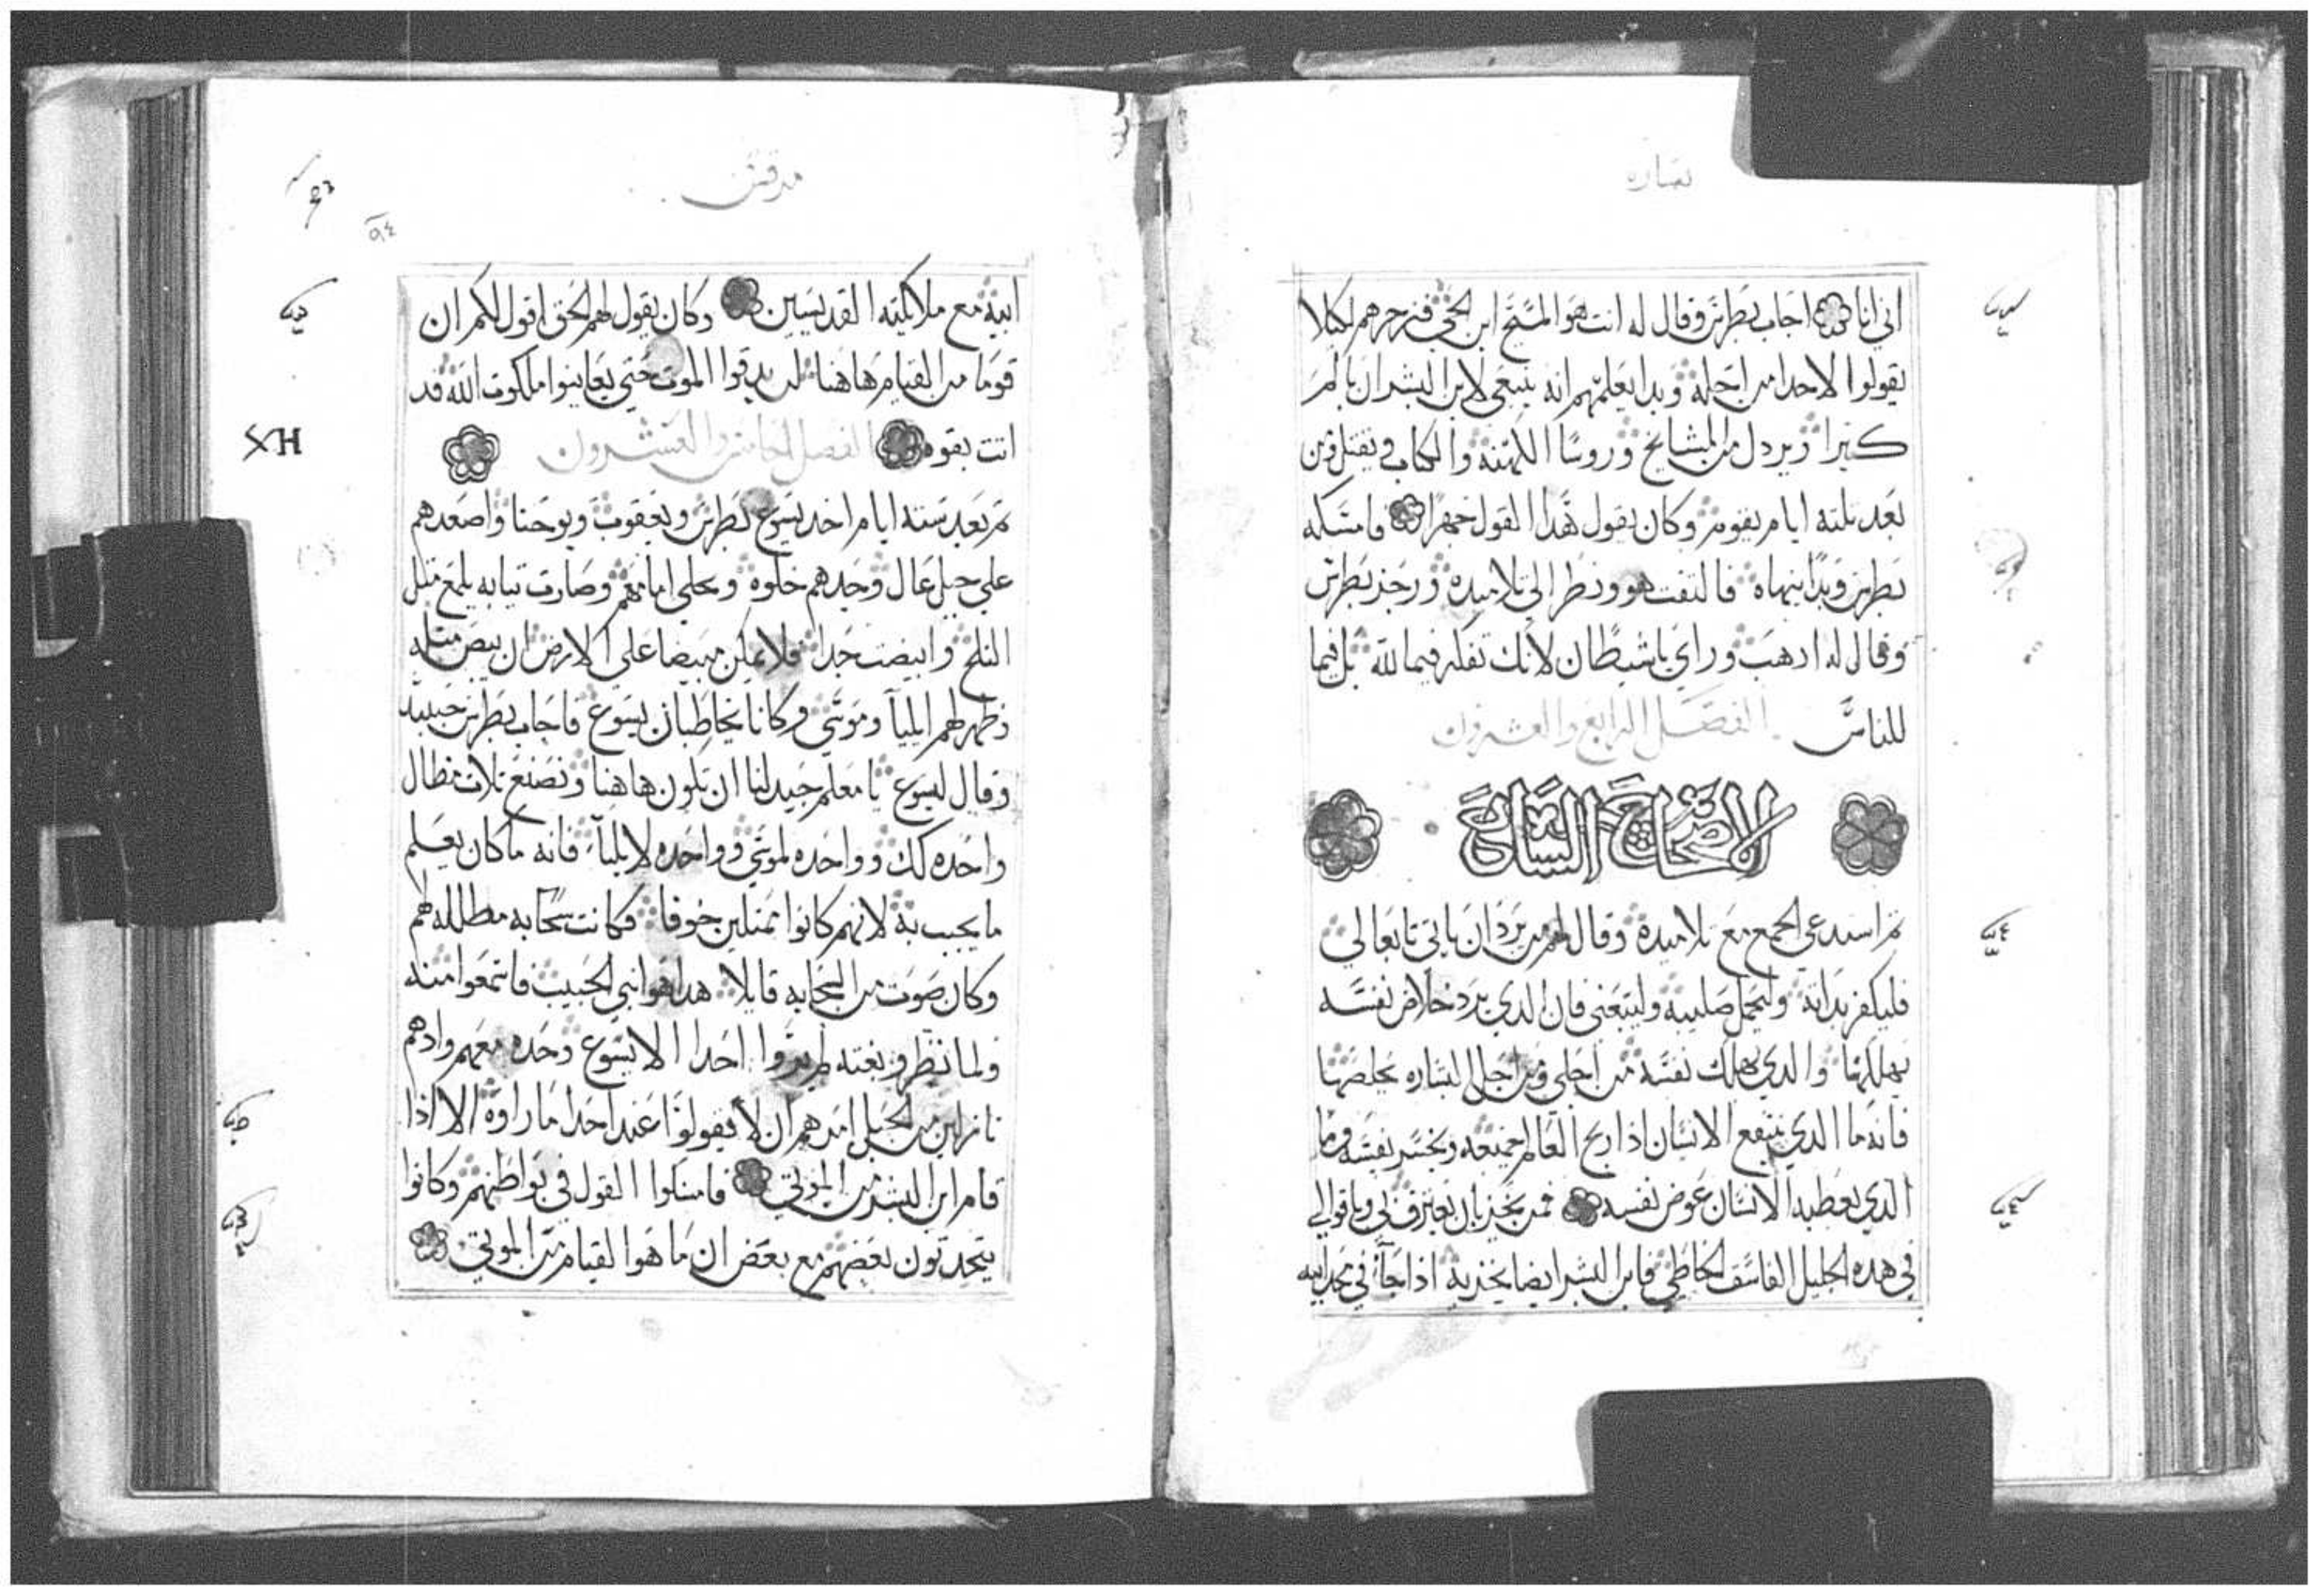 بشاره
اني انا اجاب بطرس وقال له انت هو المسيح ابن الحي فزجرهم لكيلا
يقولوا لاحدا من اجله وبدا يعلمهم انه ينبغي لابن البشر ان يالم
كثيرا ويردل من المشايخ وروسا الكهنة والكتاب ويقتل ومن
بعد تلته ايام يقوم وكان يقول هدا القول جهرا فامسكه
بطرس وبدا ينهاه فالتفت هو ونظر الى تلاميده ورجز بطرس
وقال له ادهب وراي ياشيطان لانك تفكر فيما لله بل فيما
للناس الفصل الرابع والعشرون
الاصحاح التاسع
تم استدعي الجمع مع تلاميدة وقال لهم من يرد ان ياتي تابعا لي
فليكفر بداته وليحمل صليبه وليتبعني فان الدي يرد خلاص نفسه
يهلكها والدي يهلك نفسه من اجلي ومن اجل البشاره يخلصها
فانه ما الدي ينتفع الانسان اذا ربح العالم جميعه ويخسر نفسه وما
الدي يعطيه الانسان عوض نفسه فمن يخزي ان يعترف بي وباقوالي
في هده الجليل الفاسق الخاطي فابن البشر ايضا يخزي به اذا جا في مجد ابيه
مرقس
٩٤
ابيه مع ملايكته القديسين وكان يقول لهم الحق اقول لكم ان
قوما من القيام هاهنا لن يدقوا الموت حتي يعاينوا ملكوت الله قد
اتت بقوه الفصل الخامس والعشرون
XH
تم بعد سته ايام اخد يسوع بطرس ويعقوب ويوحنا واصعدهم
علي جبل عال وحدهم خلوه وتجلي امامهم وصارت تيابه يلمع متل
التلج وابيضت جدا فلا يمكن مبيضا علي الارض ان يبيض متله
وظهر لهم ايليا وموسي وكانا يخاطبان يسوع فاجاب بطرس حينيد
وقال ليسوع يا معلم جيد لنا ان نكون هاهنا ونصنع تلات مظال
واحده لك وواحده لموسي وواحده لايليا فانه ما كان يعلم
ما يجيب به لانهم كانوا ممتلين خوفا فكانت سحابه مظلله لهم
وكان صوت من السحابه قايلا هدا هو ابني الحبيب فاسمعوا منه
ولما نظرو بغته لم يروا احدا الا يسوع وحده معهم واد هم
نازلين من الجبل امرهم ان لا يقولوا عند احدا ما راوه الا اذا
قام ابن البشر من الموتي فامسكوا القول في بواطنهم وكانوا
يتحدتون بعضهم مع بعض ان ما هوا لقيام من الموتي